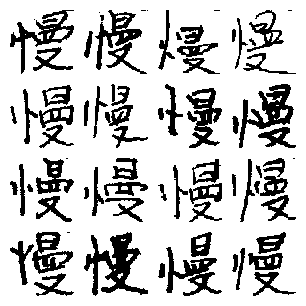 慢慢慢慢
慢慢慢慢
慢慢慢慢
慢慢慢慢